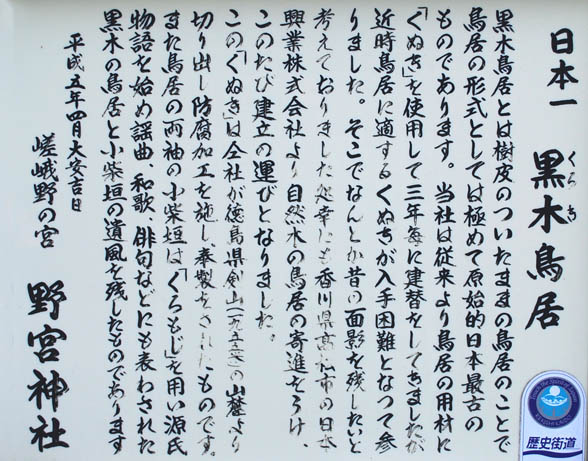 日本一 黒木鳥居
くろき
黒木鳥居とは樹皮のついたままの鳥居のことで
鳥居の形式としては極めて原始的日本最古の
ものであります。当社は従来より鳥居の用材に
「くぬぎ」を使用して三年毎に建替をしてゐましたが
近時鳥居に適するくぬぎが入手困難となつて参
りました。そこでなんとか昔の面影を残したいと
考えておりました処幸にも香川県高松市の日本
興業株式会社より自然木の鳥居の寄進をうけ、
このたび建立の運びとなりました。
この「くぬぎ」は仝社が徳島県剣山(一九五五米)の山麓より
切り出し防腐加工を施し、奉製をされたものです。
また鳥居の両袖の小柴垣は「くろもじ」を用い源氏
物語を始め謡曲 和歌 俳句などにも表わされた
黒木の鳥居と小柴垣の遺風を残したものであります
平成五年四月大安吉日
嵯峨野の宮 野宮神社
歴史街道